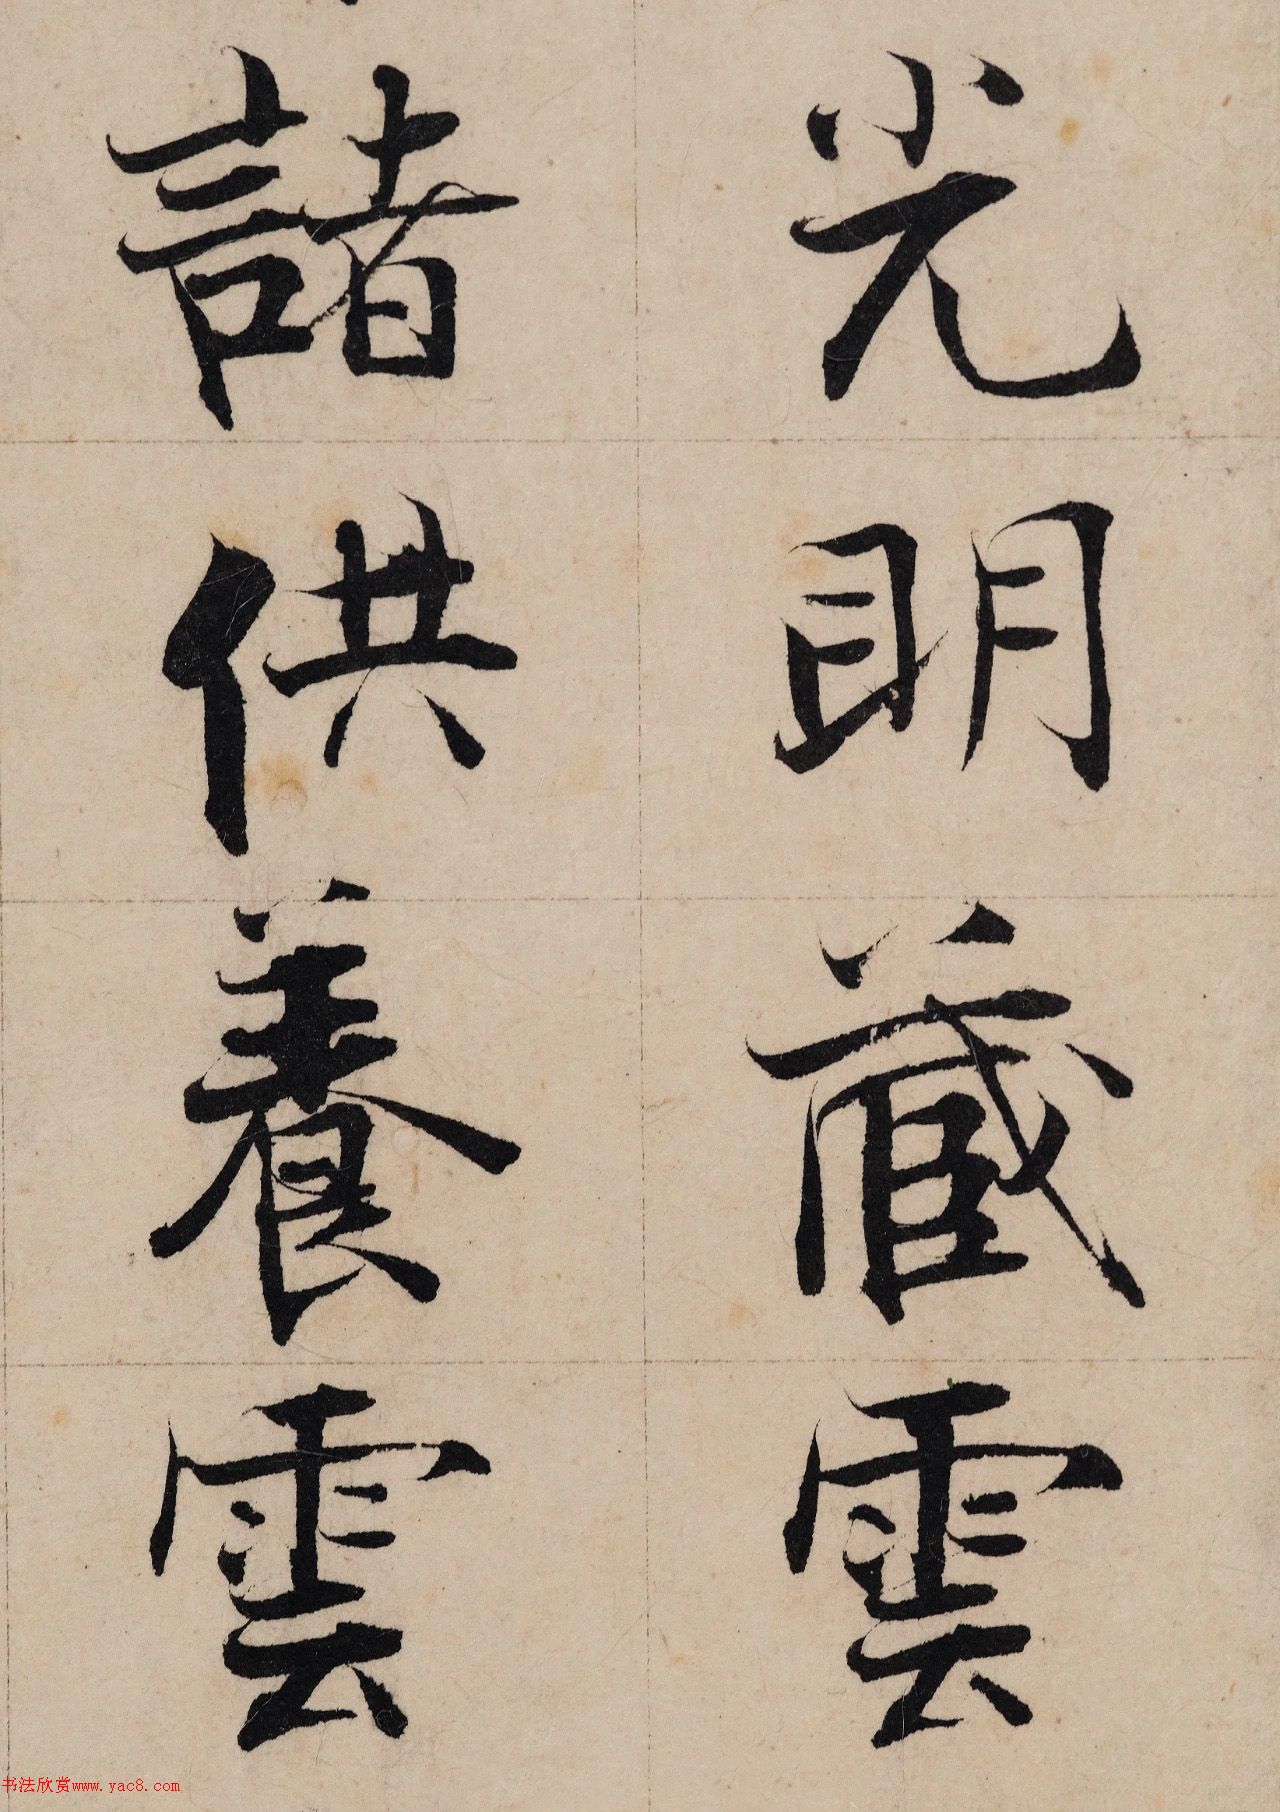 光明藏雲
諸供養雲
书法欣赏www.yac8.com